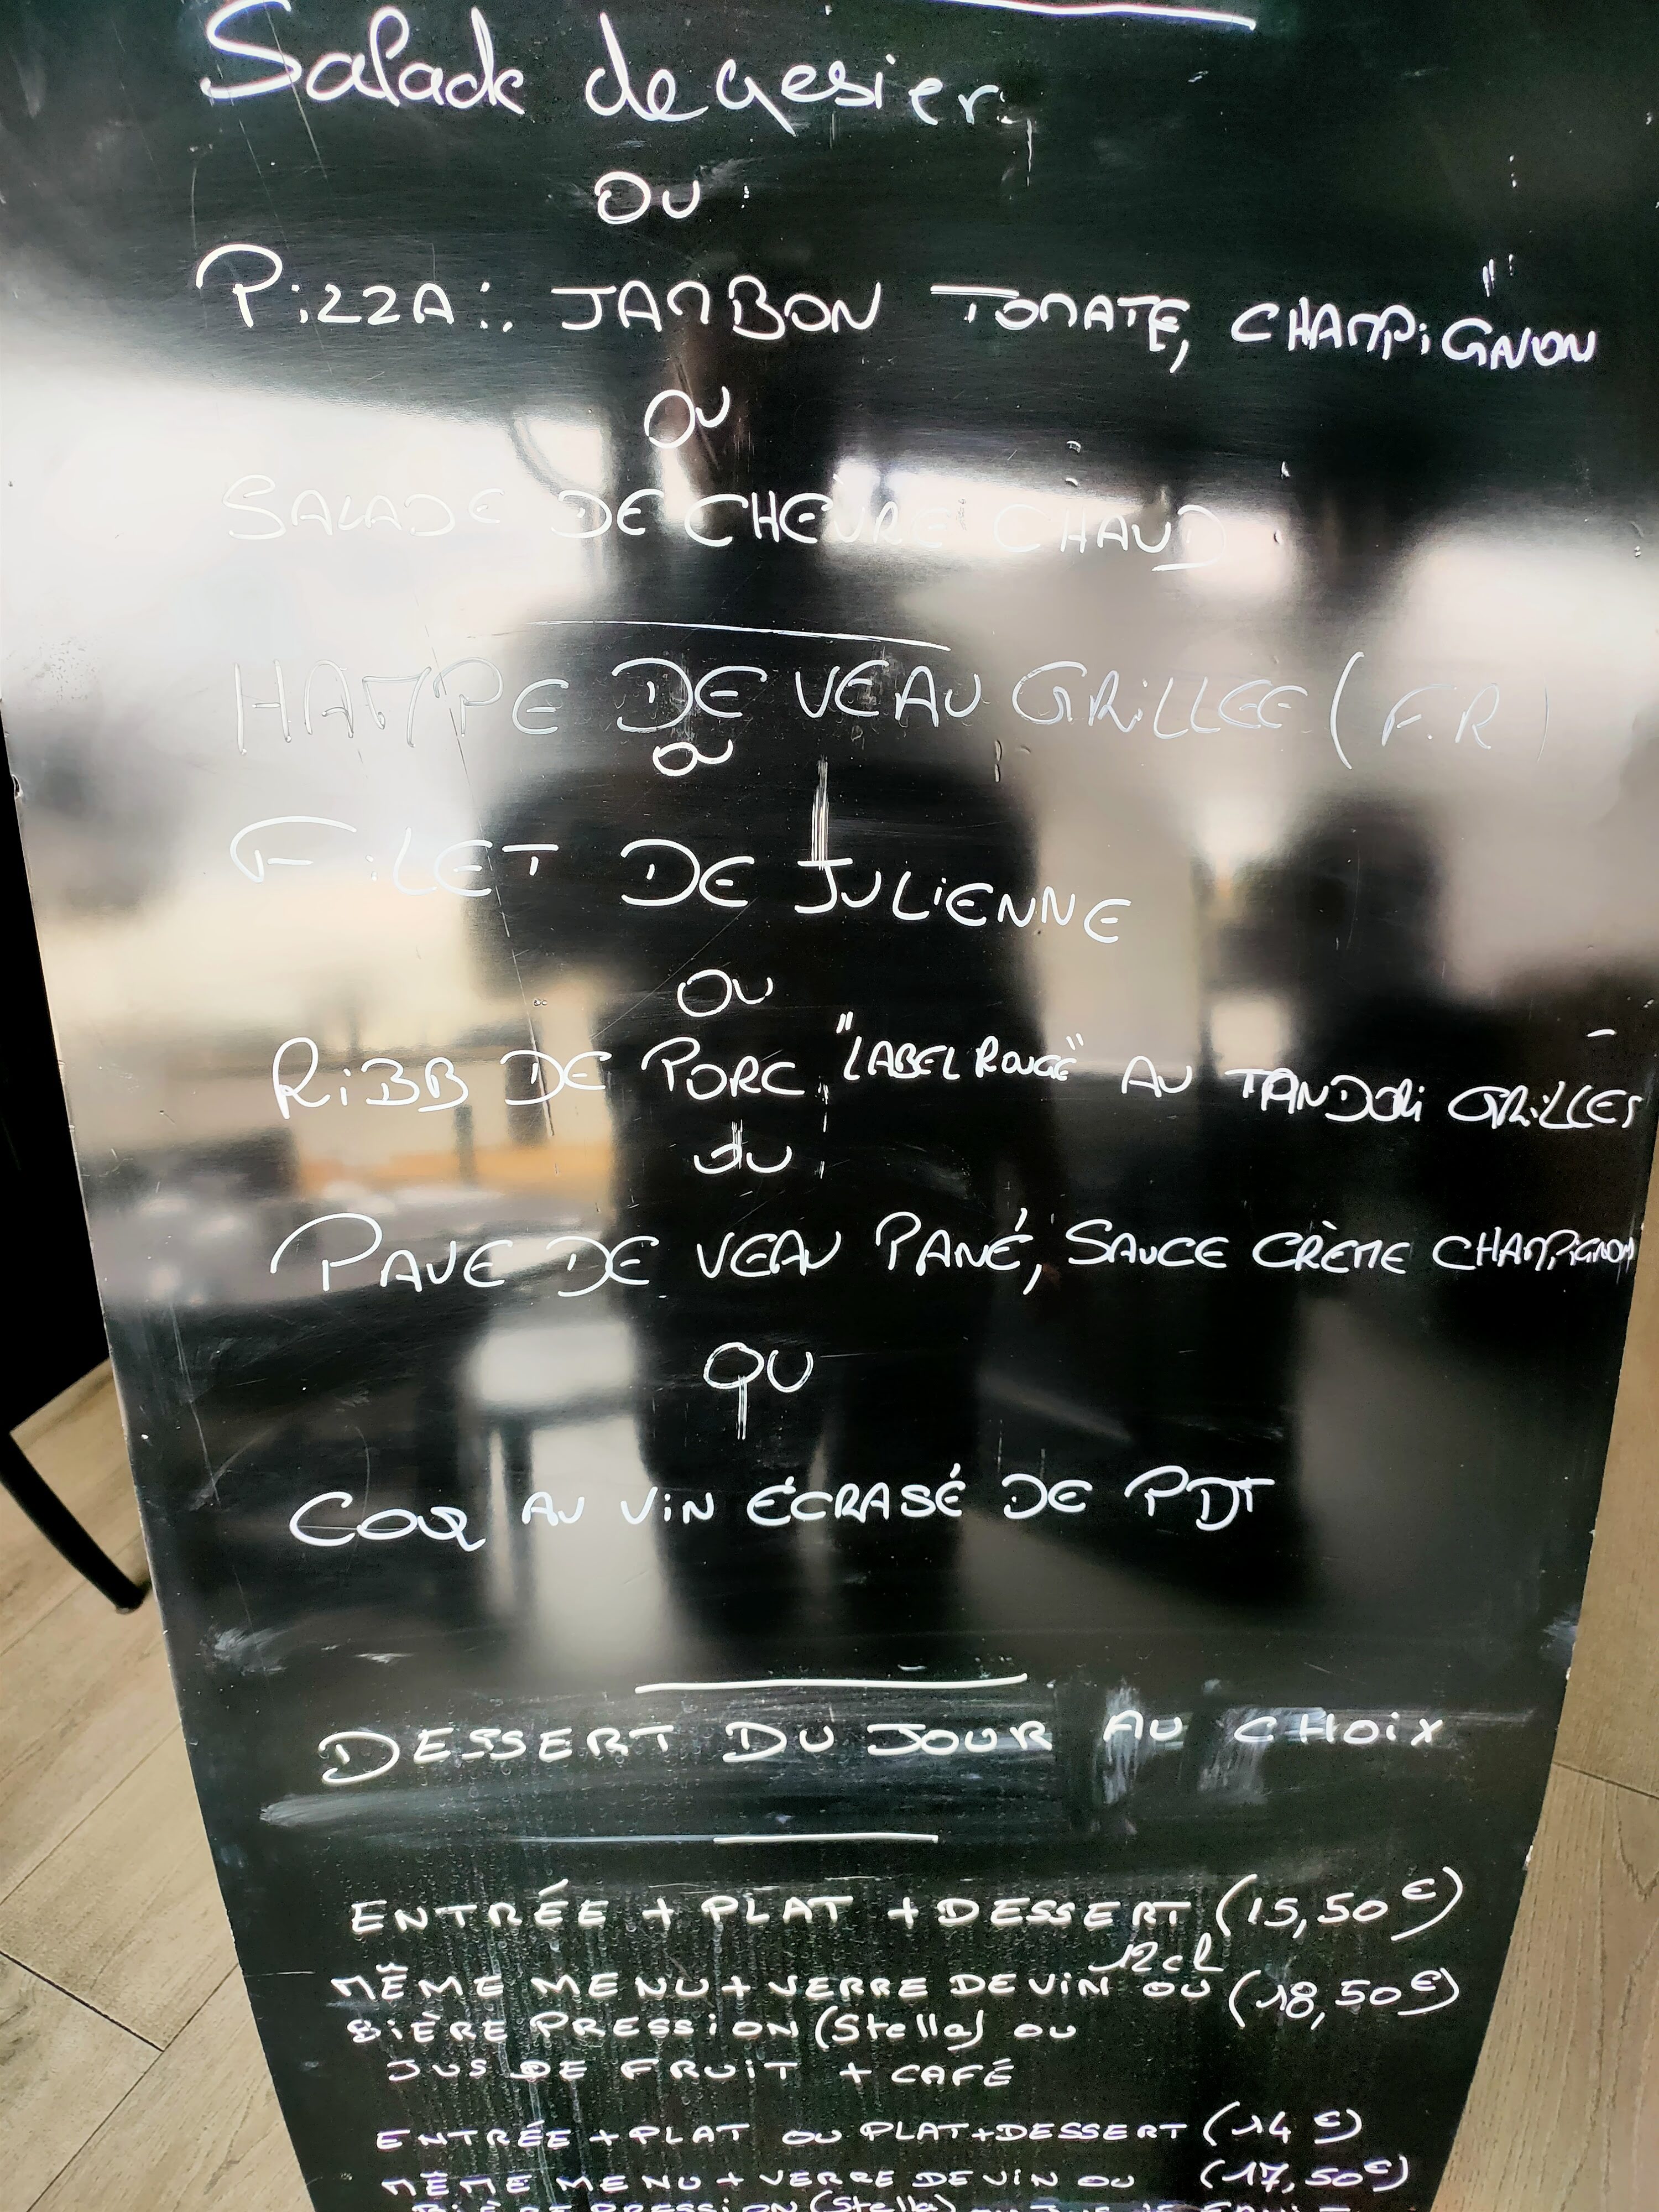 Salade de gesier
OU
PiZZA: JAMBON TOMATE, CHAMPiGNON
OU
SALADE DE CHEVRE CHAUD
HAMPE DE VEAU GRiLLEE (F.R)
OU
FiLET DE JULiENNE
OU
RiBB DE PORC "LABEL ROUGE" AU TANDORi GRiLLES
OU
PAVE DE VEAU PANÉ, SAUCE CRÈME CHAMPiGNON
OU
COQ AU ViN ÉCRASÉ DE PDT
DESSERT DU JOUR AU CHOiX
ENTRÉE + PLAT + DESSERT (15,50€)
12cl
MÊME MENU + VERRE DE ViN OU (18,50€)
BiÈRE PRESSiON (Stella) OU
JUS DE FRUiT + CAFÉ
ENTRÉE + PLAT OU PLAT + DESSERT (14€)
MÊME MENU + VERRE DE ViN OU (17,50€)
BiÈRE PRESSiON (Stella) OU JUS DE FRUiT